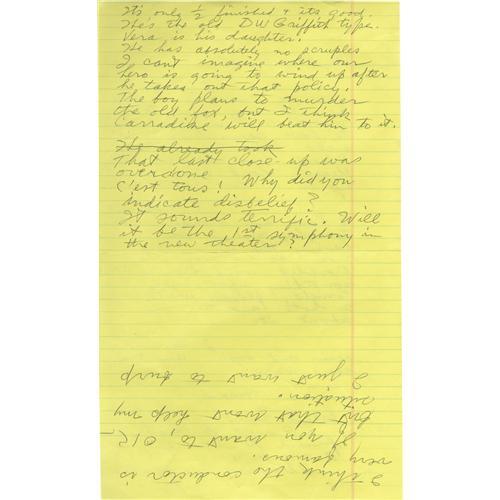 It's only ½ finished & its good.
He's the old DW Griffith type.
Vera is his daughter.
He has absolutely no scruples
I can't imagine where our
hero is going to wind up after
he takes out that policy.
The boy plans to murder
the old fox, but I think
Carradine will beat him to it.
He already took
That last close-up was
overdone
C'est tous! Why did you
indicate disbelief?
It sounds terrific. Will
it be the 1st symphony in
the new theater?
I think the conductor is
very famous.
If you want to, OK
but that won't help my
situation.
I just want to